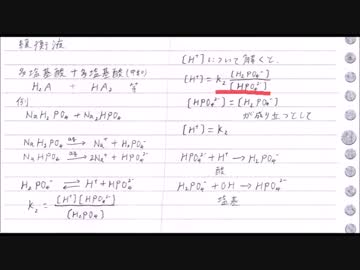 緩衝液
多塩基酸 + 多塩基酸(中和)
H₂A + HA₂ 等
例
NaH₂PO₄ + Na₂HPO₄
NaH₂PO₄ → Na⁺ + H₂PO₄⁻
Na₂HPO₄ → 2Na⁺ + HPO₄²⁻
H₂PO₄⁻ ⇄ H⁺ + HPO₄²⁻
K₂ = [H⁺][HPO₄²⁻] / [H₂PO₄⁻]
[H⁺]について解くと、
[H⁺] = K₂ [H₂PO₄⁻] / [HPO₄²⁻]
[HPO₄²⁻] = [H₂PO₄⁻]
が成り立つとして
[H⁺] = K₂
HPO₄²⁻ + H⁺ → H₂PO₄⁻
酸
H₂PO₄⁻ + OH → HPO₄²⁻
塩基